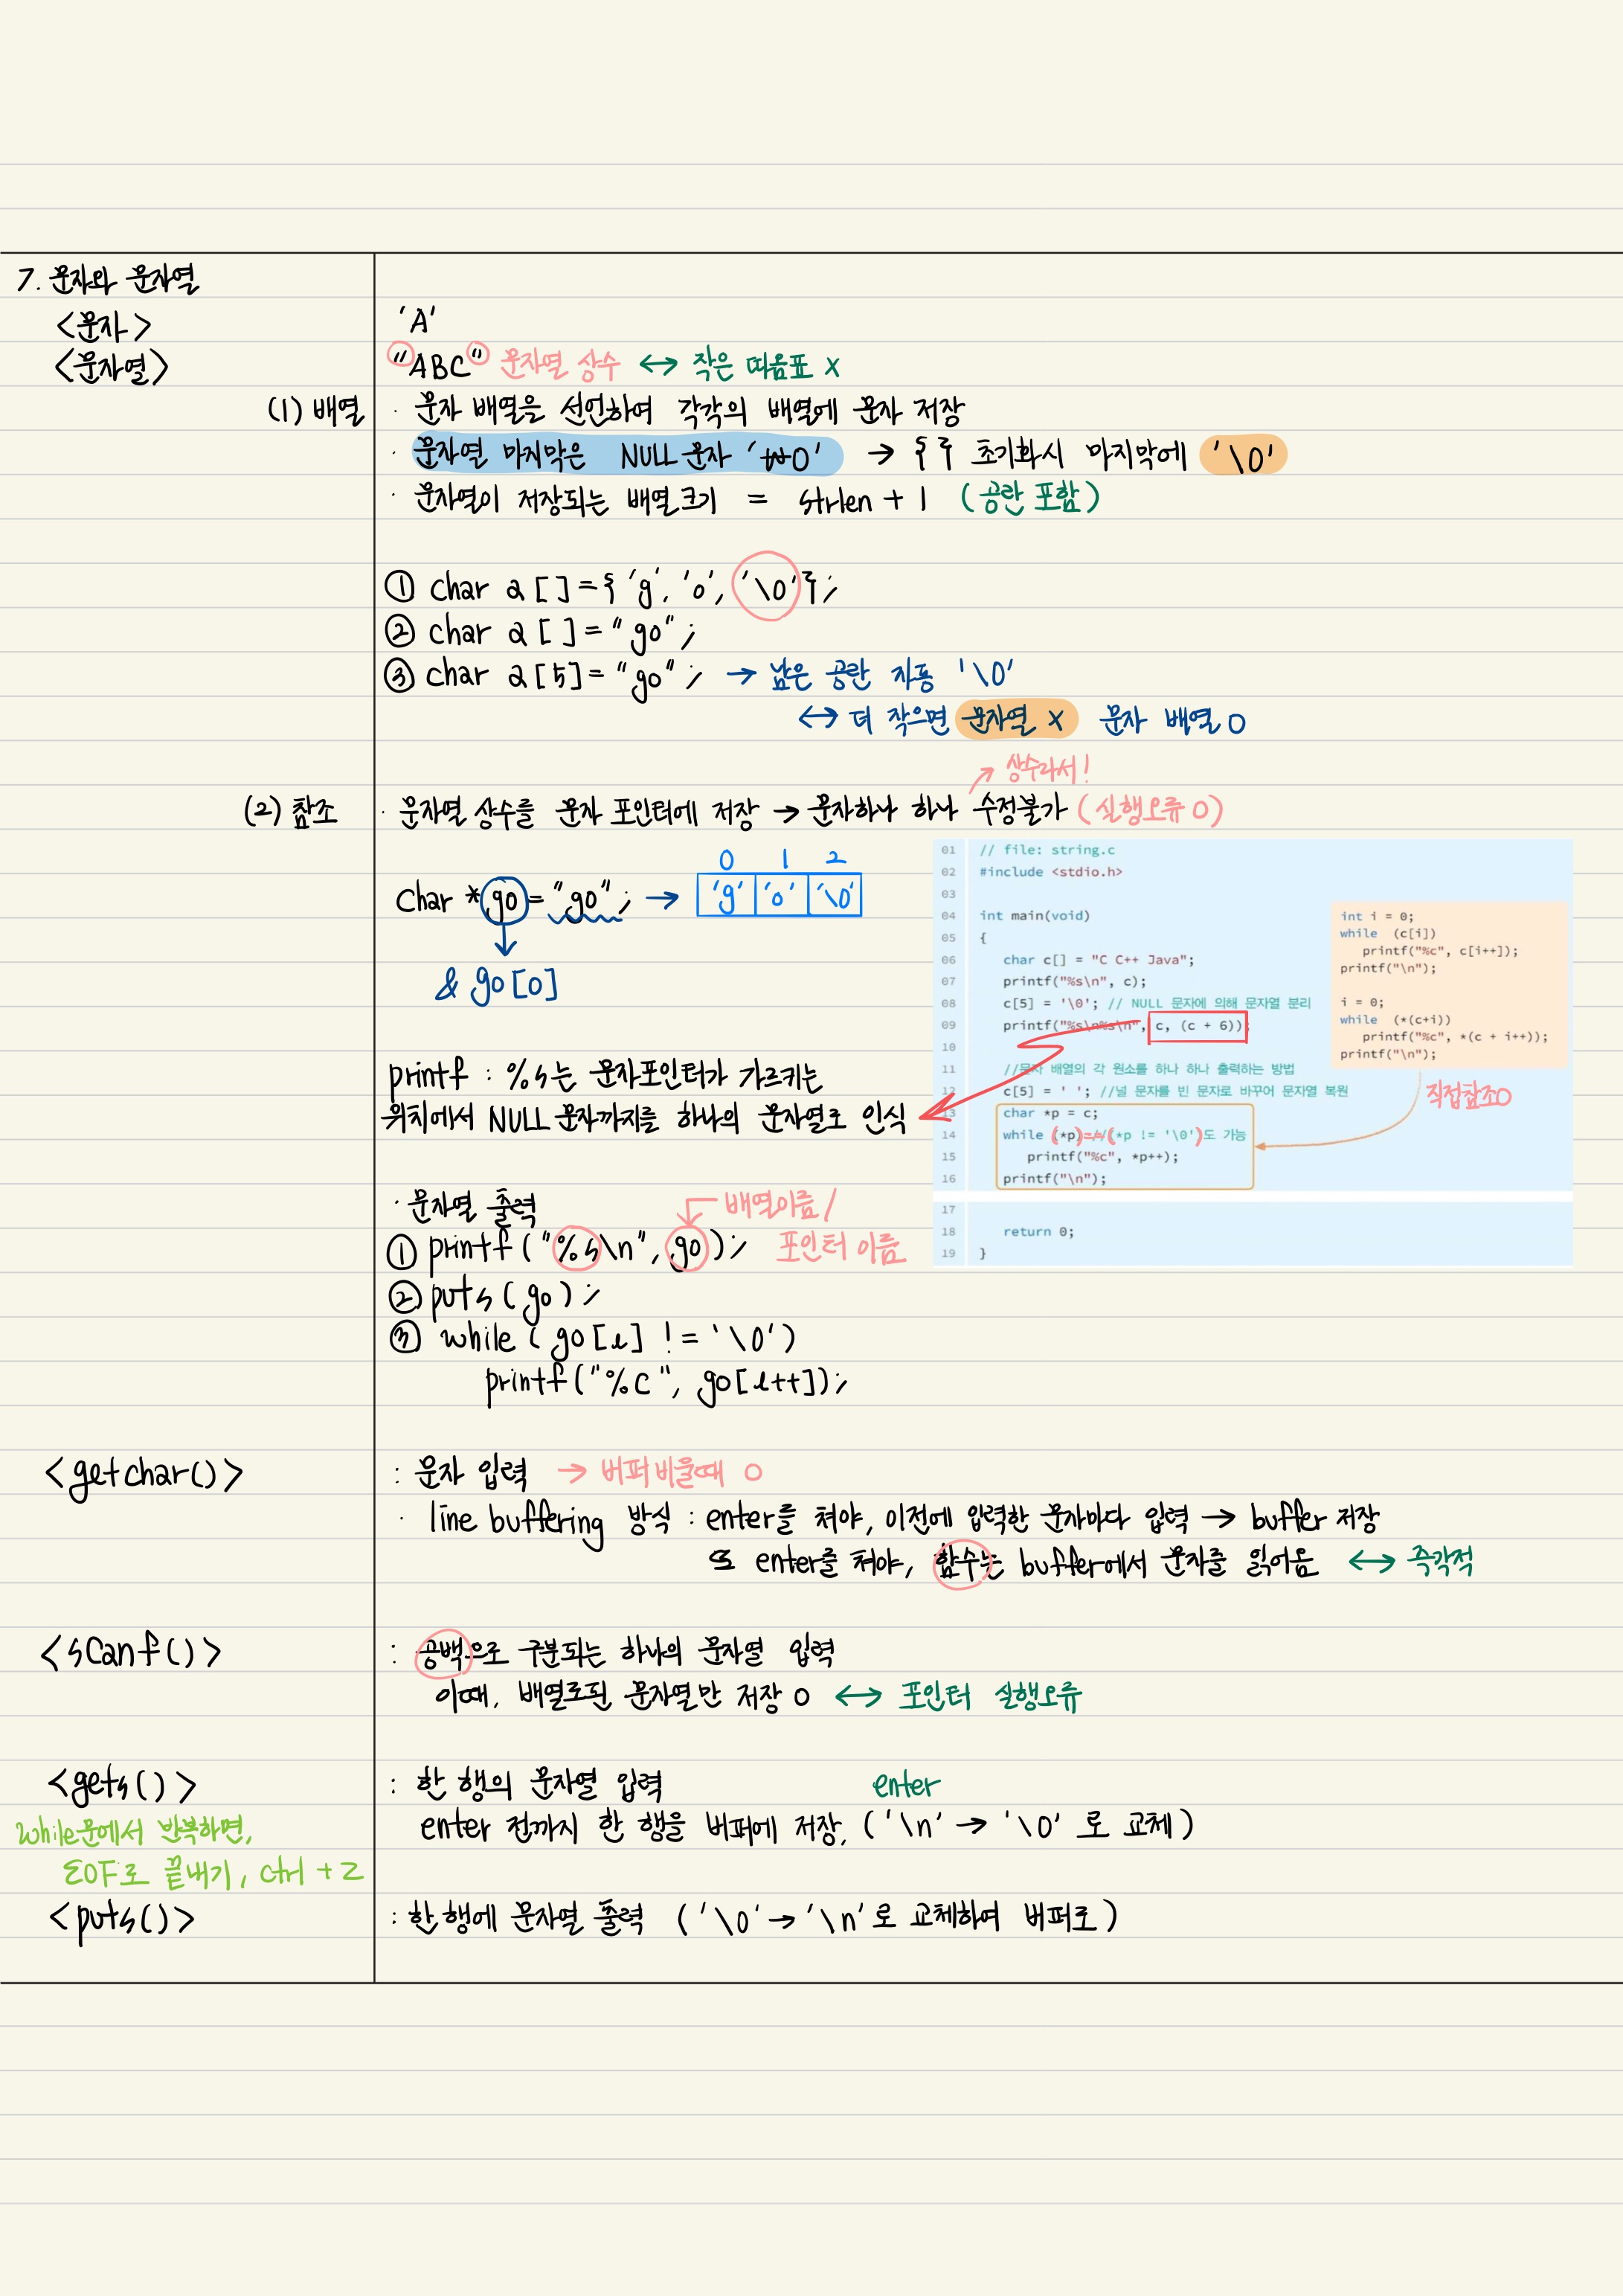 7. 문자와 문자열
<문자> 'A'
<문자열> "ABC" 문자열 상수 ↔ 작은 따옴표 x
(1) 배열 · 문자 배열을 선언하여 각각의 배열에 문자 저장
· 문자열 마지막은 NULL 문자 '₩0' → { } 초기화시 마지막에 '\0'
· 문자열이 저장되는 배열크기 = strlen + 1 (공란 포함)
① char a[]={'g', 'o', '\0'};
② char a[]="go";
③ char a[5]="go"; → 남은 공란 자동 '\0'
↔ 더 작으면 문자열 x 문자 배열 O
↗ 상수라서!
(2) 참조 · 문자열 상수를 문자 포인터에 저장 → 문자하나 하나 수정불가 (실행오류 O)
0 1 2
char *go = "go"; → 'g' 'o' '\0'
& go[0]
printf : %s는 문자포인터가 가르키는
위치에서 NULL 문자까지를 하나의 문자열로 인식
01 // file: string.c
02 #include <stdio.h>
03
04 int main(void)
05 {
06 char c[] = "C C++ Java";
07 printf("%s\n", c);
08 c[5] = '\0'; // NULL 문자에 의해 문자열 분리
09 printf("%s\n%s\n", c, (c + 6));
10
11 //문자 배열의 각 원소를 하나 하나 출력하는 방법
12 c[5] = ' '; //널 문자를 빈 문자로 바꾸어 문자열 복원
13 char *p = c;
14 while (*p) //(*p != '\0')도 가능
15 printf("%c", *p++);
16 printf("\n");
17
18 return 0;
19 }
int i = 0;
while (c[i])
printf("%c", c[i++]);
printf("\n");
i = 0;
while (*(c+i))
printf("%c", *(c + i++));
printf("\n");
직접참조O
· 문자열 출력
배열이름 /
포인터 이름
① printf("%s\n", go);
② puts(go);
③ while (go[i] != '\0')
printf("%c", go[i++]);
<getchar()> : 문자 입력 → 버퍼비울때 O
· line buffering 방식 : enter를 쳐야, 이전에 입력한 문자마다 입력 → buffer 저장
enter를 쳐야, 함수는 buffer에서 문자를 읽어옴 ↔ 즉각적
<scanf()> : 공백으로 구분되는 하나의 문자열 입력
이때, 배열로된 문자열만 저장 O ↔ 포인터 실행오류
<gets()> : 한 행의 문자열 입력
enter
enter 전까지 한 행을 버퍼에 저장, ('\n' → '\0' 로 교체)
while문에서 반복하면,
EOF로 끝내기, ctrl + z
<puts()> : 한 행에 문자열 출력 ('\0' → '\n' 로 교체하여 버퍼로)